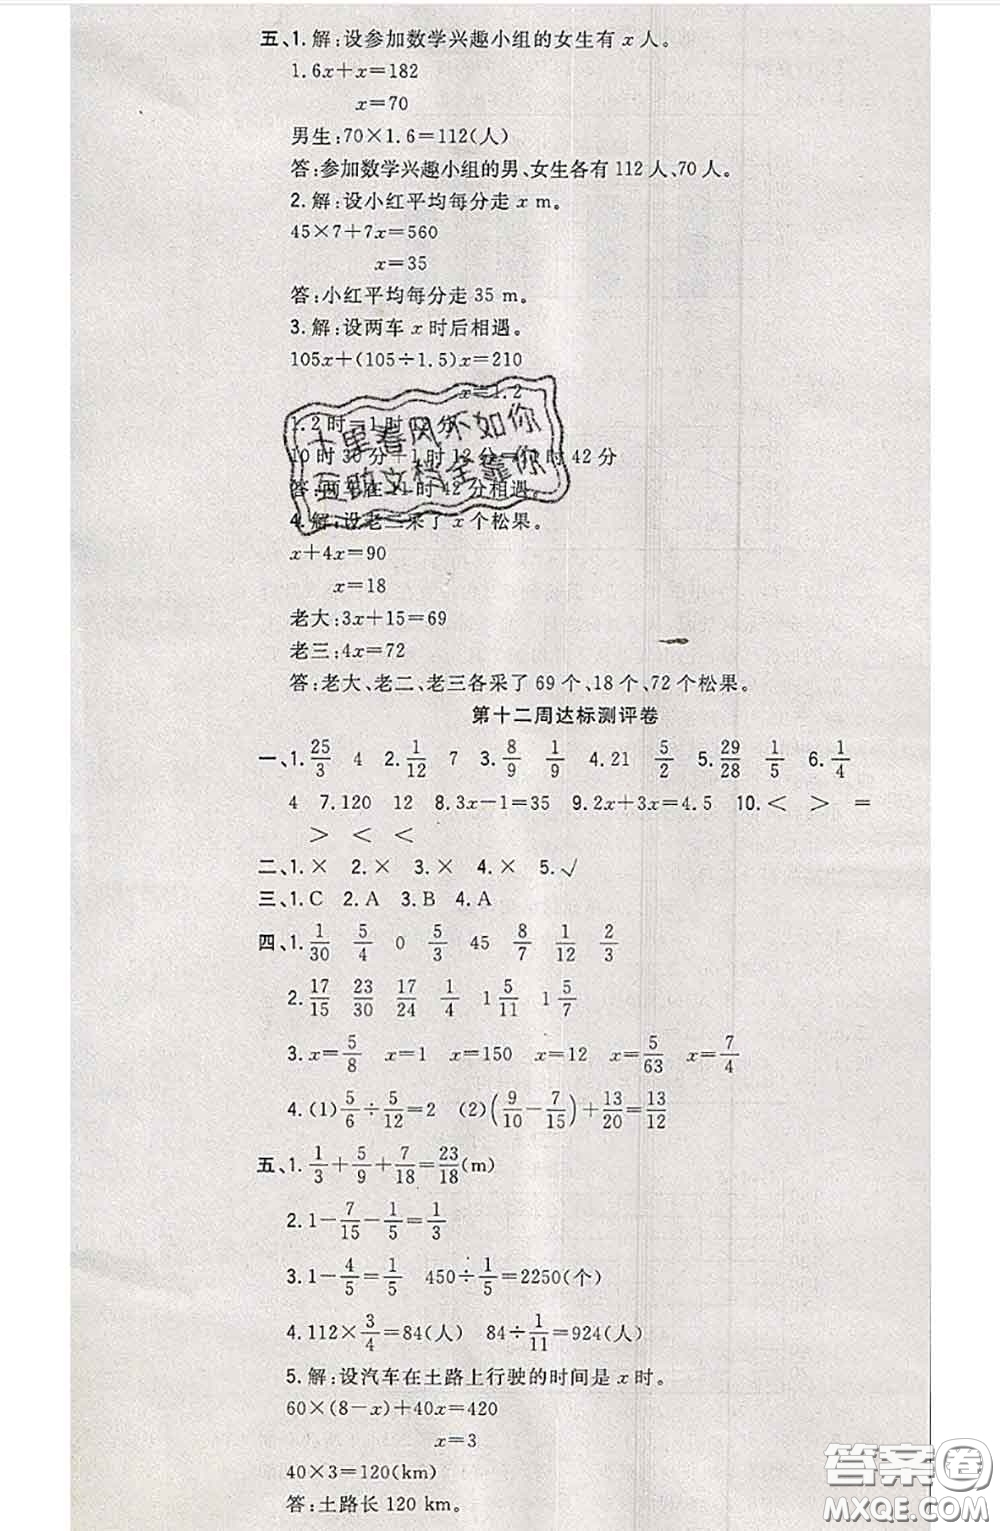 五、1. 解:设参加数学兴趣小组的女生有 x 人。
1.6x+x=182
x=70
男生:70×1.6=112(人)
答:参加数学兴趣小组的男、女生各有 112 人、70 人。
2. 解:设小红平均每分走 x m。
45×7+7x=560
x=35
答:小红平均每分走 35 m。
3. 解:设两车 x 时后相遇。
105x+(105÷1.5)x=210
x=1.2
1.2 时=1 时 12 分
10 时 30 分+1 时 12 分=11 时 42 分
答:两车在 11 时 42 分相遇。
十里春风不如你
互助文档全靠你
4. 解:设老二采了 x 个松果。
x+4x=90
x=18
老大:3x+15=69
老三:4x=72
答:老大、老二、老三各采了 69 个、18 个、72 个松果。
第十二周达标测评卷
一、1. 25/3 4 2. 1/12 7 3. 8/9 1/9 4. 21 5/2 5. 29/28 1/5 6. 1/4
4 7. 120 12 8. 3x-1=35 9. 2x+3x=4.5 10. < > =
> < <
二、1. × 2. × 3. × 4. × 5. √
三、1. C 2. A 3. B 4. A
四、1. 1/30 5/4 0 5/3 45 8/7 1/12 2/3
2. 17/15 23/30 17/24 1/4 1 5/11 1 5/7
3. x=5/8 x=1 x=150 x=12 x=5/63 x=7/4
4. (1) 5/6÷5/12=2 (2) (9/10-7/15)+13/20=13/12
五、1. 1/3+5/9+7/18=23/18(m)
2. 1-7/15-1/5=1/3
3. 1-4/5=1/5 450÷1/5=2250(个)
4. 112×3/4=84(人) 84÷1/11=924(人)
5. 解:设汽车在土路上行驶的时间是 x 时。
60×(8-x)+40x=420
x=3
40×3=120(km)
答:土路长 120 km。
答案圈
MXQE.COM